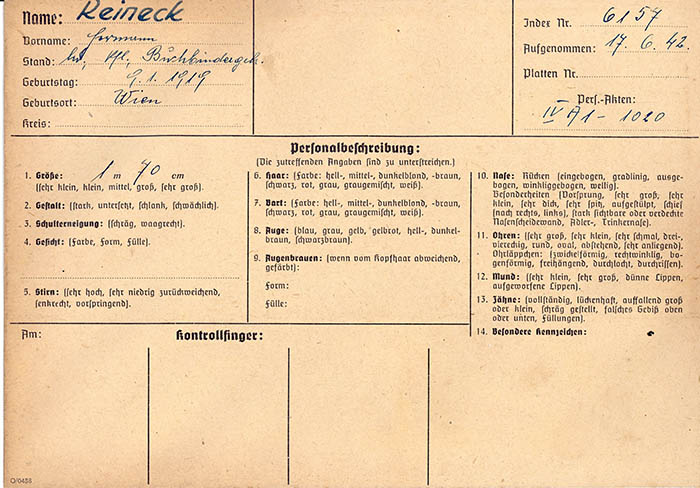 Name: Reineck
Vorname: Hermann
Stand: Buchbindergeh.
Geburtstag: 9. 1. 1919
Geburtsort: Wien
Kreis:
Index Nr. 6157
Aufgenommen: 17. 6. 42.
Platten Nr.
Pers.-Akten:
IV A1 - 1020
Personalbeschreibung:
(Die zutreffenden Angaben sind zu unterstreichen.)
1. Größe: 1 m 70 cm
(sehr klein, klein, mittel, groß, sehr groß).
2. Gestalt: (stark, untersetzt, schlank, schwächlich).
3. Schulterneigung: (schräg, waagrecht).
4. Gesicht: (Farbe, Form, Fülle).
5. Stirn: (sehr hoch, sehr niedrig zurückweichend,
senkrecht, vorspringend).
6. Haar: (Farbe: hell-, mittel-, dunkelblond, -braun,
schwarz, rot, grau, graugemischt, weiß).
7. Bart: (Farbe: hell-, mittel-, dunkelblond, -braun,
schwarz, rot, grau, graugemischt, weiß).
8. Auge: (blau, grau, gelb, gelbrot, hell-, dunkel-
braun, schwarzbraun).
9. Augenbrauen: (wenn vom Kopfhaar abweichend,
gefärbt):
Form:
Fülle:
10. Nase: Rücken (eingebogen, gradlinig, ausge-
bogen, winkliggebogen, wellig).
Besonderheiten (Vorsprung, sehr groß, sehr
klein, sehr dick, sehr spitz, aufgestülpt, schief
(nach rechts, links), stark sichtbare oder verdeckte
Nasenscheidewand, Adler-, Trinkernase).
11. Ohren: (sehr groß, sehr klein, sehr schmal, drei-,
viereckig, rund, oval, abstehend, sehr anliegend).
Ohrläppchen: (zwickelförmig, rechtwinklig, bo-
genförmig, freihängend, durchlocht, durchrissen).
12. Mund: (sehr klein, sehr groß, dünne Lippen,
aufgeworfene Lippen).
13. Zähne: (vollständig, lückenhaft, auffallend groß
oder klein, schräg gestellt, falsches Gebiß oben
oder unten, Füllungen).
14. Besondere Kennzeichen:
Am:
Kontrollfinger:
O/0438